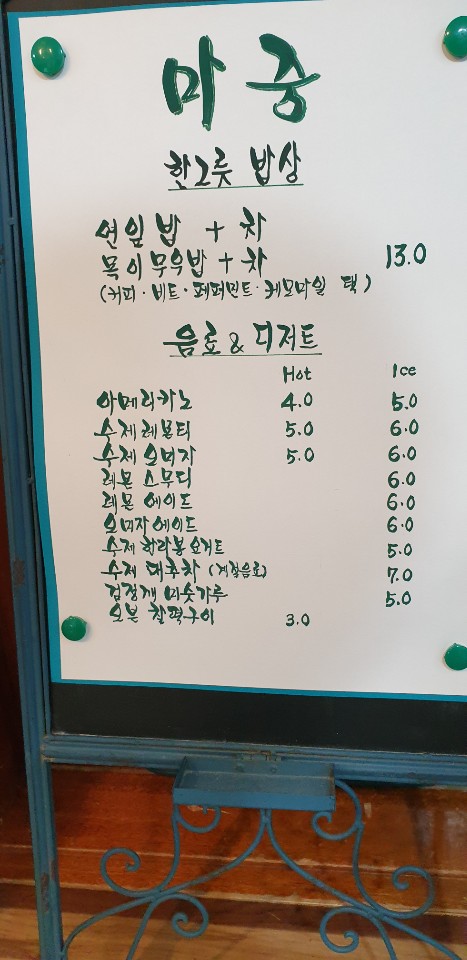 마중
한그릇 밥상
연잎밥 + 차
목이무우밥 + 차 13.0
(커피·비트·페퍼민트·케모마일 택)
음료 & 디저트
Hot Ice
아메리카노 4.0 5.0
수제레몬티 5.0 6.0
수제오미자 5.0 6.0
레몬스무디 6.0
레몬에이드 6.0
오미자에이드 6.0
수제한라봉요거트 5.0
수제대추차 (계절음료) 7.0
검정깨 미숫가루 5.0
오븐 찰떡구이 3.0